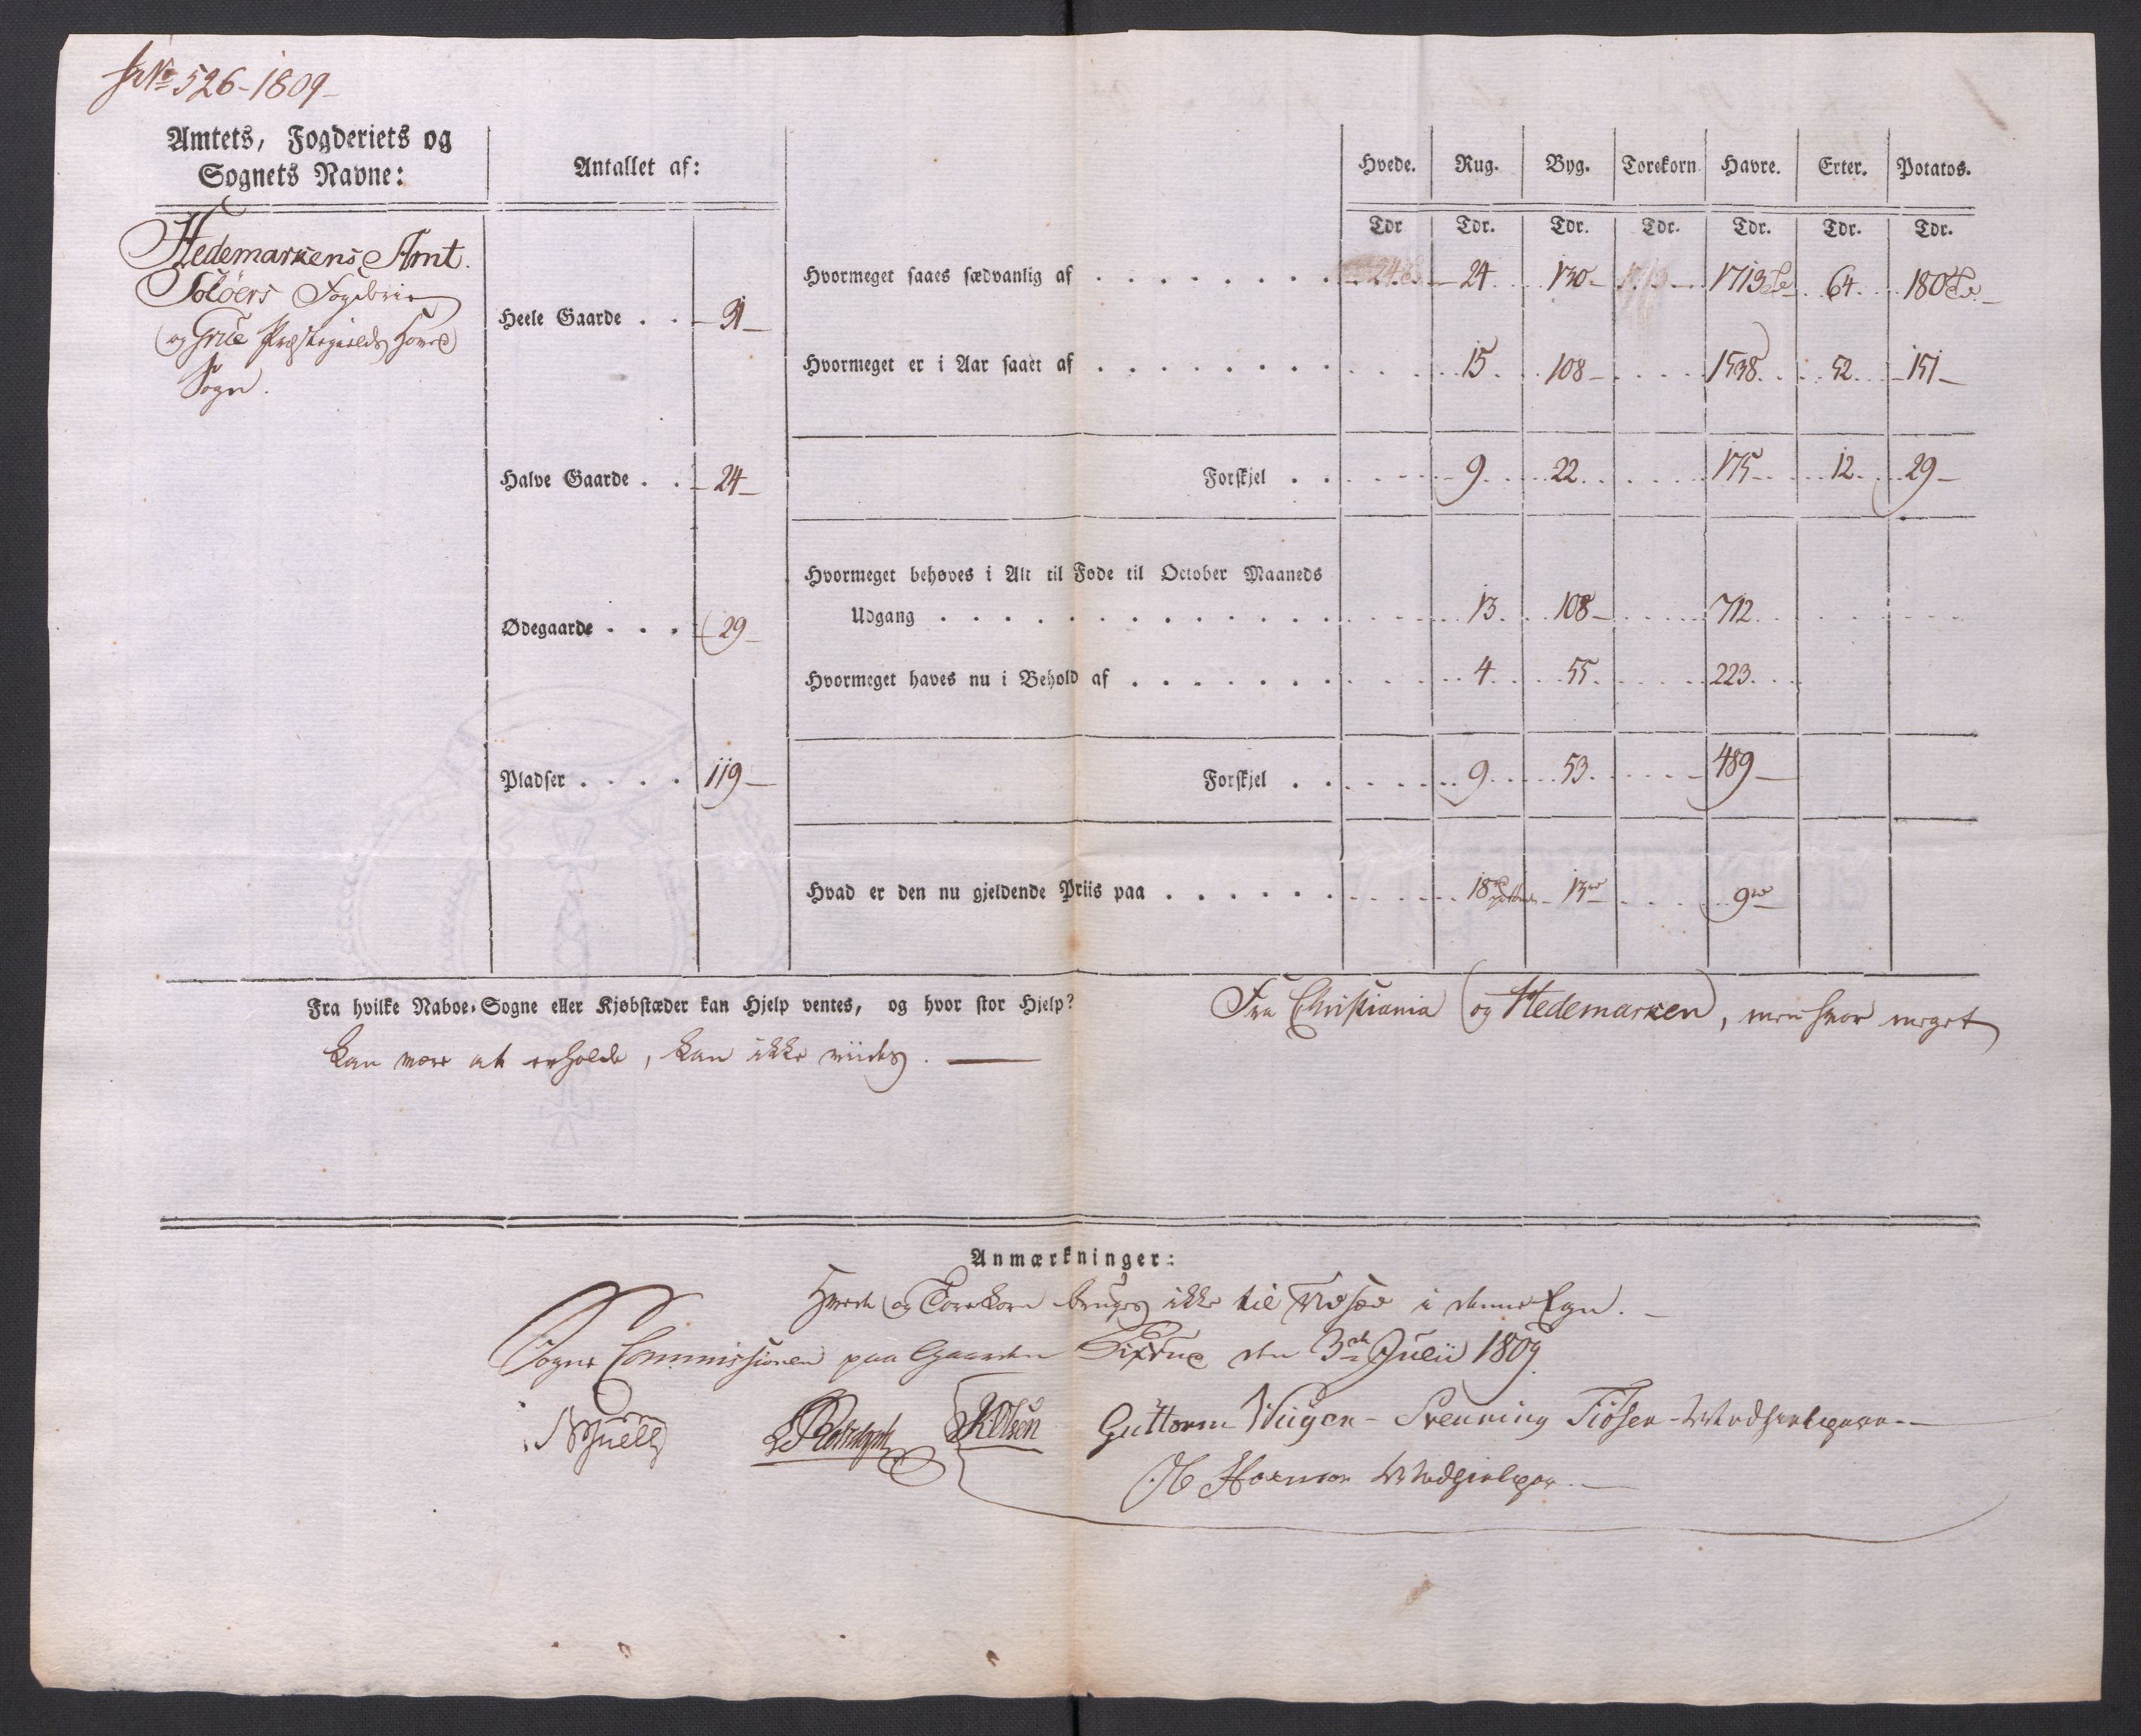 No 526-1809
Amtets, Fogderiets og
Sognets Navne:
Antallet af:
Hvede. Rug. Byg. Torekorn Havre. Erter. Potatos.
Tdr Tdr. Tdr. Tdr. Tdr. Tdr. Tdr.
Hedemarkens Amt.
Soløers Fogderie
og Grue Præstegields Hoved
Sogn.
Heele Gaarde . . 91
Halve Gaarde . . 24
Ødegaarde . . . 29
Pladser . . . . 119
Hvormeget saaes sædvanlig af 24 130 1713 64 180
Hvormeget er i Aar saaet af 15 108 1538 52 151
Forskjel . . 9 22 175 12 29
Hvormeget behøves i Alt til Føde til October Maaneds
Udgang 13 108 712
Hvormeget haves nu i Behold af 4 55 223
Forskjel . . 9 53 489
Hvad er den nu gjeldende Priis paa 18 13 9
Fra hvilke Naboe-Sogne eller Kjøbstæder kan Hjelp ventes, og hvor stor Hjelp? Fra Christiania og Hedemarken, men hvor meget
kan være at erholde, kan ikke viides.
Anmærkninger:
Hvede og Torekorn bruges ikke til Udsæd i denne Egn.
Sogne Commissionen paa Gaarden den 3de Julii 1809
Guttorm Svenning